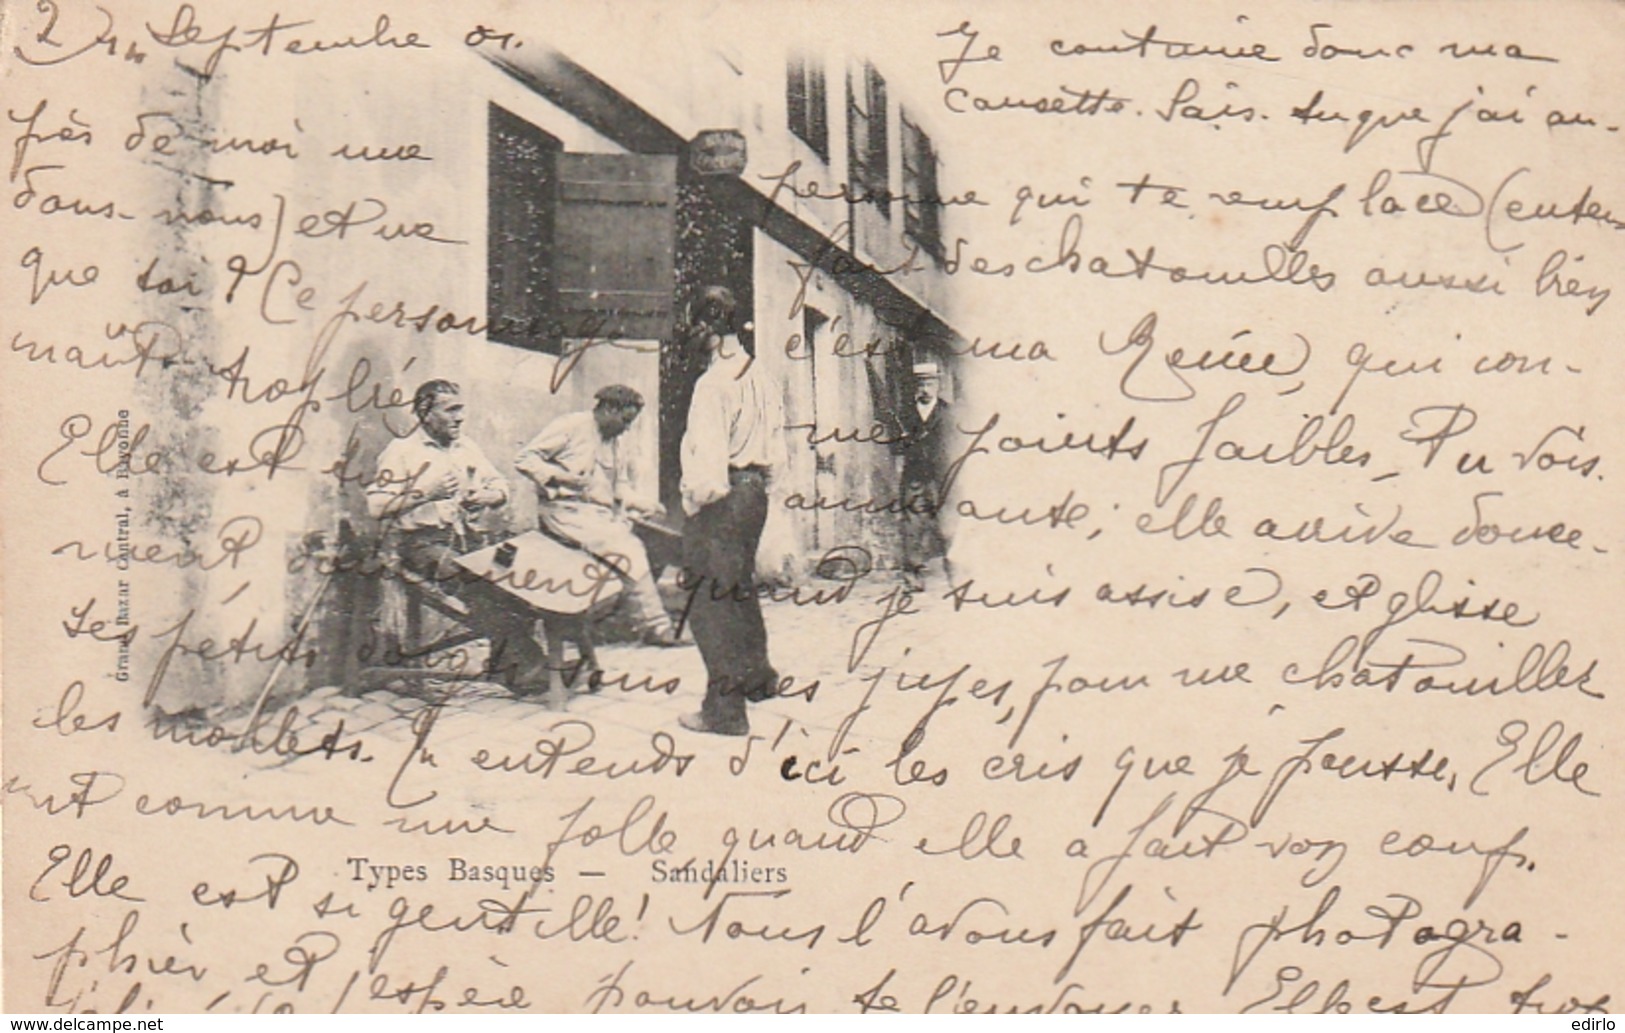 2 Septembre 01.
Je continue donc ma
causette. Sais-tu que j'ai au-
près de moi une personne qui te remplace (enten-
dons-nous) et me fait des chatouilles aussi bien
que toi ? Ce personnage là, c'est ma Renée, qui con-
naît trop bien mes points faibles, Tu vois.
Elle est trop amusante; elle arrive douce-
ment, doucement, quand je suis assise, et glisse
ses petits doigts sous mes jupes, pour me chatouiller
les mollets. Tu entends d'ici les cris que je pousse, Elle
rit comme une folle quand elle a fait son coup.
Elle est si gentille! Nous l'avons fait photogra-
phier et j'espère pouvoir te l'envoyer. Elle est trop
Grand Bazar Central, à Bayonne
Types Basques — Sandaliers
edirlo